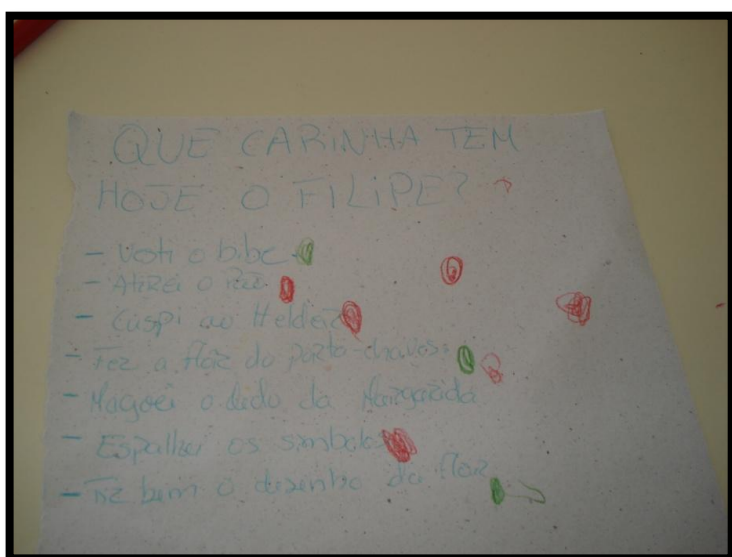 QUE CARINHA TEM
HOJE O FILIPE?
- Vesti o bibe
- Atirei o
- Cuspi ao Helder
- Fez a flor do porto-chaves
- Magoei o dedo da Margarida
- Espalhei os símbolos
- Fiz bem o desenho da flor